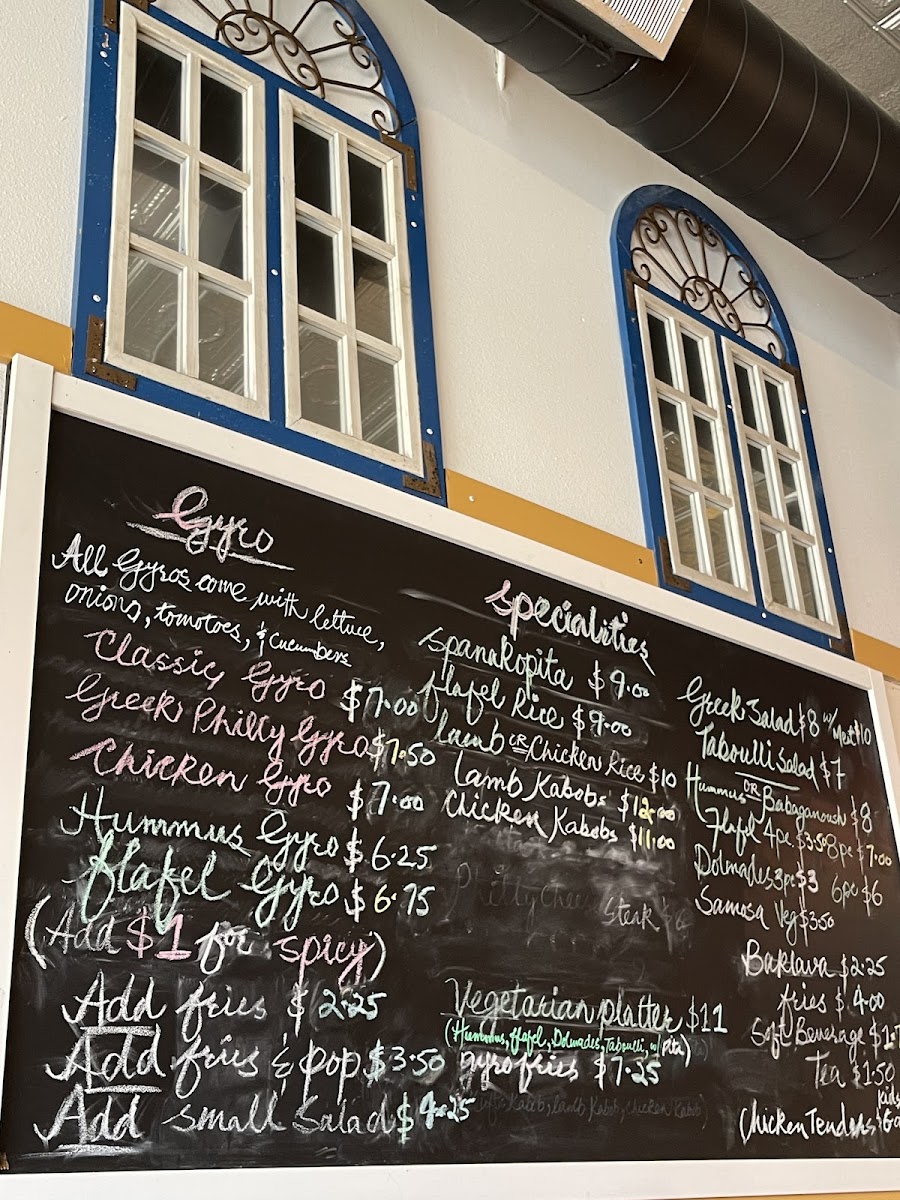 Gyro
All Gyros come with lettuce,
onions, tomatoes, & cucumbers
Classic Gyro $7.00
Greek Philly Gyro $7.50
Chicken Gyro $7.00
Hummus Gyro $6.25
flafel Gyro $6.75
(Add $1 for spicy)
Add fries $2.25
Add fries & pop $3.50
Add small Salad $4.25
Specialities
Spanakopita $9.00
flafel Rice $9.00
lamb OR Chicken Rice $10
Lamb Kabobs $12.00
Chicken Kabobs $11.00
Philly Chee
Steak
Vegetarian platter $11
(Hummus, flafel, Dolmades, Taboulli, w/ pita)
gyro fries $7.25
Kabob, lamb Kabob, chicken Kabob)
Greek Salad $8 w/ Meat $10
Taboulli Salad $7
Hummus OR Babaganoush $8
flafel 4pc $3.50 8pc $7.00
Dolmades 3pc $3 6pc $6
Samosa Veg $3.50
Baklava $2.25
fries $4.00
Soft Beverage $1.
Tea $1.50
kids
Chicken Tenders